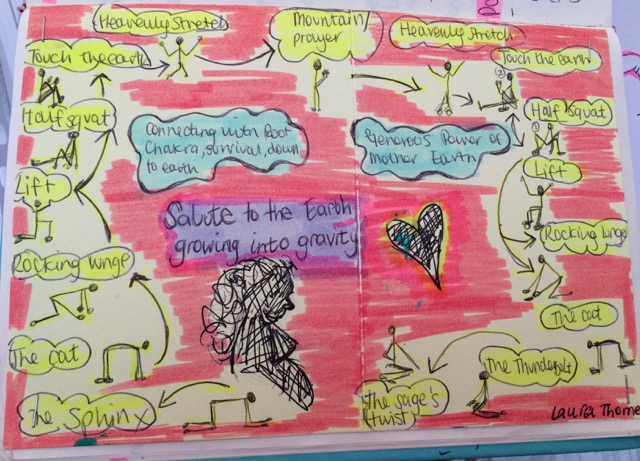 Heavenly Stretch
Mountain/
prayer
Heavenly Stretch
Touch the earth
Touch the earth
Half squat
Half squat
Connecting with Root
Chakra, survival, down
to earth
Generous Power of
Mother Earth
Lift
Lift
Salute to the Earth
growing into gravity
Rocking lunge
Rocking lunge
The cat
The cat
The Thunderbolt
The sage's
twist
The Sphinx
Laura Thorne